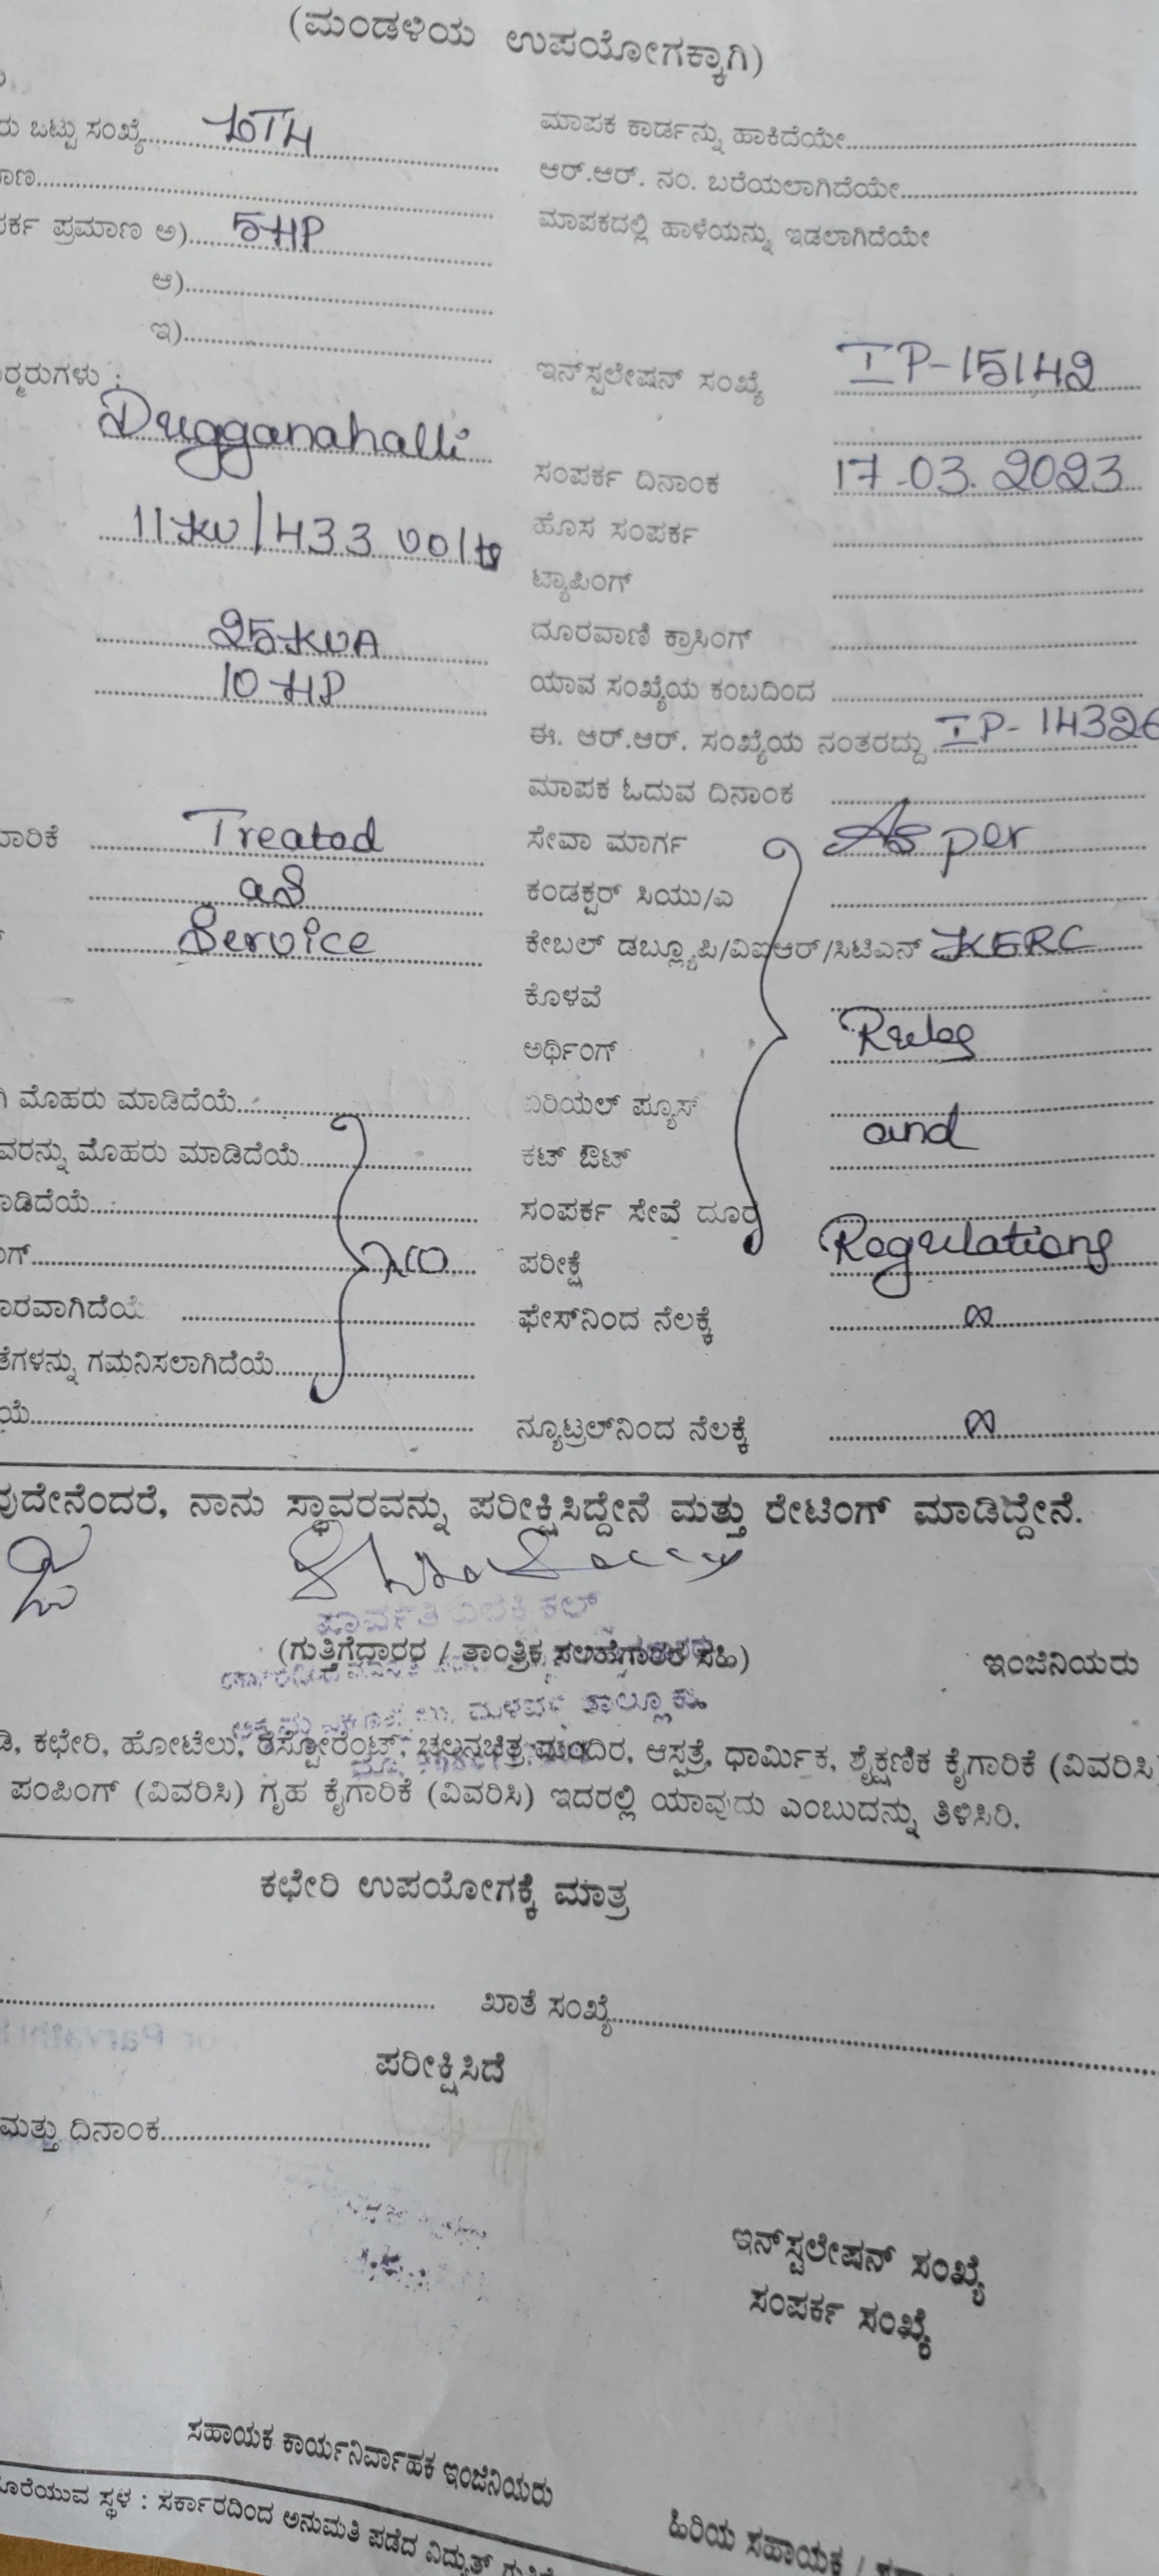 (ಮಂಡಳಿಯ ಉಪಯೋಗಕ್ಕಾಗಿ)
ರು ಒಟ್ಟು ಸಂಖ್ಯೆ......
ಮಾಪಕ ಕಾರ್ಡನ್ನು ಹಾಕಿದೆಯೇ......
ಆರ್.ಆರ್. ನಂ. ಬರೆಯಲಾಗಿದೆಯೇ......
ರ್ಕ ಪ್ರಮಾಣ ಅ)...... 5HP
ಮಾಪಕದಲ್ಲಿ ಹಾಳೆಯನ್ನು ಇಡಲಾಗಿದೆಯೇ
ಆ)......
ಇ)......
ರ್ಮರುಗಳು :
ಇನ್‌ಸ್ಟಲೇಷನ್ ಸಂಖ್ಯೆ IP-15142
Dugganahalli
ಸಂಪರ್ಕ ದಿನಾಂಕ 17-03-2023
11kv/433 volts
ಹೊಸ ಸಂಪರ್ಕ
ಟ್ಯಾಪಿಂಗ್
25 KVA
ದೂರವಾಣಿ ಕ್ರಾಸಿಂಗ್
10 HP
ಯಾವ ಸಂಖ್ಯೆಯ ಕಂಬದಿಂದ
ಈ. ಆರ್.ಆರ್. ಸಂಖ್ಯೆಯ ನಂತರದ್ದು IP-14326
ಮಾಪಕ ಓದುವ ದಿನಾಂಕ
Treated
ಸೇವಾ ಮಾರ್ಗ As per
as
ಕಂಡಕ್ಟರ್ ಸಿಯು/ಎ
Service
ಕೇಬಲ್ ಡಬ್ಲ್ಯೂಪಿ/ವಿಐಆರ್/ಸಿಟಿಎಸ್ KERC
ಕೊಳವೆ
ಅರ್ಥಿಂಗ್ Rules
ಮೊಹರು ಮಾಡಿದೆಯೆ......
ಏರಿಯಲ್ ಫ್ಯೂಸ್
and
ವರನ್ನು ಮೊಹರು ಮಾಡಿದೆಯೆ......
ಕಟ್ ಔಟ್
ಾಡಿದೆಯೆ......
ಸಂಪರ್ಕ ಸೇವೆ ದೂರ
ಗ್......
ಪರೀಕ್ಷೆ Regulations
ಾರವಾಗಿದೆಯೆ ......
ಫೇಸ್‌ನಿಂದ ನೆಲಕ್ಕೆ ∞
ತೆಗಳನ್ನು ಗಮನಿಸಲಾಗಿದೆಯೆ......
ಯೆ......
ನ್ಯೂಟ್ರಲ್‌ನಿಂದ ನೆಲಕ್ಕೆ ∞
ವುದೇನೆಂದರೆ, ನಾನು ಸ್ಥಾವರವನ್ನು ಪರೀಕ್ಷಿಸಿದ್ದೇನೆ ಮತ್ತು ರೇಟಿಂಗ್ ಮಾಡಿದ್ದೇನೆ.
(ಗುತ್ತಿಗೆದಾರರ / ತಾಂತ್ರಿಕ ಸಲಹೆಗಾರರ ಸಹಿ)
ಇಂಜಿನಿಯರು
ಡಿ, ಕಛೇರಿ, ಹೋಟೆಲು, ರೆಸ್ಟೋರೆಂಟ್, ಚಲನಚಿತ್ರ ಮಂದಿರ, ಆಸ್ಪತ್ರೆ, ಧಾರ್ಮಿಕ, ಶೈಕ್ಷಣಿಕ ಕೈಗಾರಿಕೆ (ವಿವರಿಸಿ)
ಪಂಪಿಂಗ್ (ವಿವರಿಸಿ) ಗೃಹ ಕೈಗಾರಿಕೆ (ವಿವರಿಸಿ) ಇದರಲ್ಲಿ ಯಾವುದು ಎಂಬುದನ್ನು ತಿಳಿಸಿರಿ.
ಕಛೇರಿ ಉಪಯೋಗಕ್ಕೆ ಮಾತ್ರ
ಖಾತೆ ಸಂಖ್ಯೆ......
ಪರೀಕ್ಷಿಸಿದೆ
ಮತ್ತು ದಿನಾಂಕ......
ಇನ್‌ಸ್ಟಲೇಷನ್ ಸಂಖ್ಯೆ
ಸಂಪರ್ಕ ಸಂಖ್ಯೆ
ಸಹಾಯಕ ಕಾರ್ಯನಿರ್ವಾಹಕ ಇಂಜಿನಿಯರು
ಹಿರಿಯ ಸಹಾಯಕ /
ದೊರೆಯುವ ಸ್ಥಳ : ಸರ್ಕಾರದಿಂದ ಅನುಮತಿ ಪಡೆದ ವಿದ್ಯುತ್